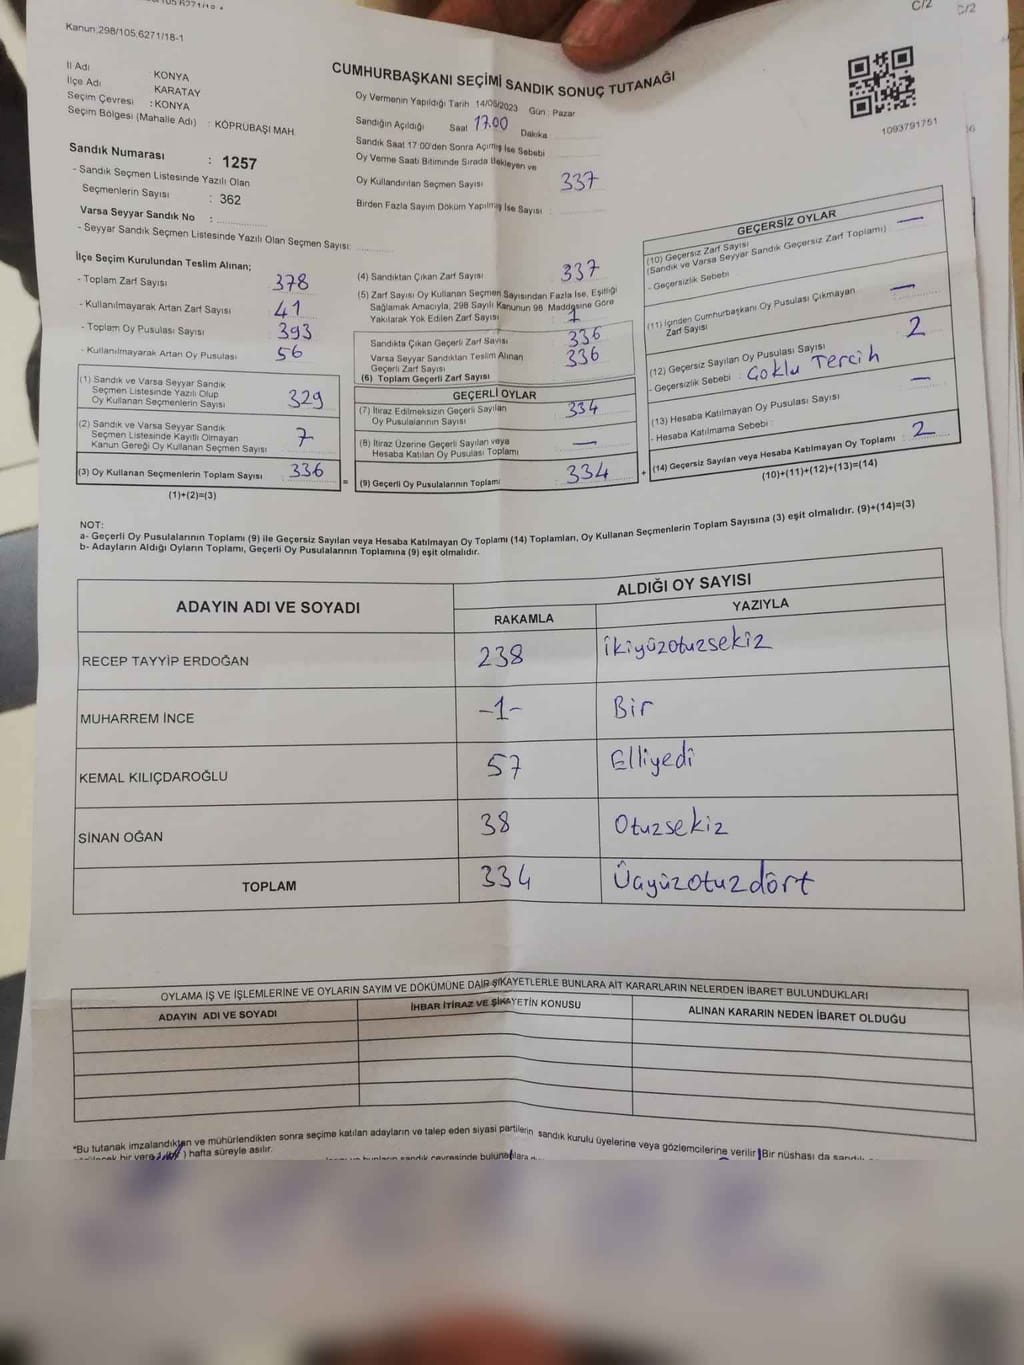 C/2
C/2
Kanun,298/105,6271/18-1
İl Adı KONYA
İlçe Adı KARATAY
Seçim Çevresi : KONYA
Seçim Bölgesi (Mahalle Adı) : KÖPRÜBAŞI MAH.
Sandık Numarası : 1257
- Sandık Seçmen Listesinde Yazılı Olan
Seçmenlerin Sayısı : 362
Varsa Seyyar Sandık No :
- Seyyar Sandık Seçmen Listesinde Yazılı Olan Seçmen Sayısı:
CUMHURBAŞKANI SEÇİMİ SANDIK SONUÇ TUTANAĞI
Oy Vermenin Yapıldığı Tarih 14/05/2023 Gün : Pazar
Sandığın Açıldığı Saat 17.00 Dakika
Sandık Saat 17:00'den Sonra Açılmış İse Sebebi
Oy Verme Saati Bitiminde Sırada Bekleyen ve
Oy Kullandırılan Seçmen Sayısı 337
Birden Fazla Sayım Döküm Yapılmış İse Sayısı :
1093791751
İlçe Seçim Kurulundan Teslim Alınan;
- Toplam Zarf Sayısı 378
- Kullanılmayarak Artan Zarf Sayısı 41
- Toplam Oy Pusulası Sayısı 393
- Kullanılmayarak Artan Oy Pusulası 56
(1) Sandık ve Varsa Seyyar Sandık
Seçmen Listesinde Yazılı Olup
Oy Kullanan Seçmenlerin Sayısı 329
(2) Sandık ve Varsa Seyyar Sandık
Seçmen Listesinde Kayıtlı Olmayan
Kanun Gereği Oy Kullanan Seçmen Sayısı 7
(3) Oy Kullanan Seçmenlerin Toplam Sayısı 336
(1)+(2)=(3)
(4) Sandıktan Çıkan Zarf Sayısı 337
(5) Zarf Sayısı Oy Kullanan Seçmen Sayısından Fazla İse, Eşitliği
Sağlamak Amacıyla, 298 Sayılı Kanunun 98. Maddesine Göre
Yakılarak Yok Edilen Zarf Sayısı 1
Sandıkta Çıkan Geçerli Zarf Sayısı 336
Varsa Seyyar Sandıktan Teslim Alınan
Geçerli Zarf Sayısı 336
(6) Toplam Geçerli Zarf Sayısı
GEÇERLİ OYLAR
(7) İtiraz Edilmeksizin Geçerli Sayılan
Oy Pusulalarının Sayısı 334
(8) İtiraz Üzerine Geçerli Sayılan veya
Hesaba Katılan Oy Pusulası Toplamı —
(9) Geçerli Oy Pusulalarının Toplamı 334
GEÇERSİZ OYLAR
(10) Geçersiz Zarf Sayısı
(Sandık ve Varsa Seyyar Sandık Geçersiz Zarf Toplamı) —
- Geçersizlik Sebebi
(11) İçinden Cumhurbaşkanı Oy Pusulası Çıkmayan
Zarf Sayısı —
(12) Geçersiz Sayılan Oy Pusulası Sayısı 2
- Geçersizlik Sebebi : Çoklu Tercih
(13) Hesaba Katılmayan Oy Pusulası Sayısı —
- Hesaba Katılmama Sebebi :
(14) Geçersiz Sayılan veya Hesaba Katılmayan Oy Toplamı 2
(10)+(11)+(12)+(13)=(14)
NOT:
a- Geçerli Oy Pusulalarının Toplamı (9) ile Geçersiz Sayılan veya Hesaba Katılmayan Oy Toplamı (14) Toplamları, Oy Kullanan Seçmenlerin Toplam Sayısına (3) eşit olmalıdır. (9)+(14)=(3)
b- Adayların Aldığı Oyların Toplamı, Geçerli Oy Pusulalarının Toplamına (9) eşit olmalıdır.
ADAYIN ADI VE SOYADI ALDIĞI OY SAYISI
RAKAMLA YAZIYLA
RECEP TAYYİP ERDOĞAN 238 ikiyüzotuzsekiz
MUHARREM İNCE -1- Bir
KEMAL KILIÇDAROĞLU 57 Elliyedi
SİNAN OĞAN 38 Otuzsekiz
TOPLAM 334 Üçyüzotuzdört
OYLAMA İŞ VE İŞLEMLERİNE VE OYLARIN SAYIM VE DÖKÜMÜNE DAİR ŞİKAYETLERLE BUNLARA AİT KARARLARIN NELERDEN İBARET BULUNDUKLARI
ADAYIN ADI VE SOYADI İHBAR İTİRAZ VE ŞİKAYETİN KONUSU ALINAN KARARIN NEDEN İBARET OLDUĞU
*Bu tutanak imzalandıktan ve mühürlendikten sonra seçime katılan adayların ve talep eden siyasi partilerin sandık kurulu üyelerine veya gözlemcilerine verilir. Bir nüshası da
hafta süreyle asılır.